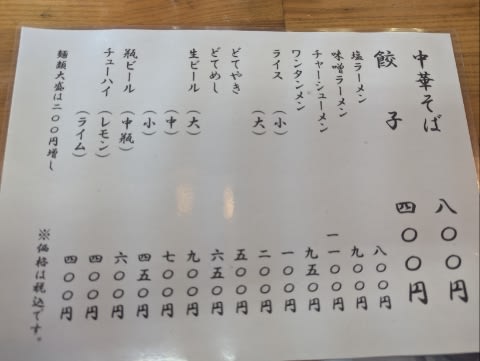 中華そば 八〇〇円
餃子 四〇〇円
塩ラーメン 八〇〇円
味噌ラーメン 九〇〇円
チャーシューメン 一一〇〇円
ワンタンメン 九五〇円
ライス （小） 一〇〇円
（大） 二〇〇円
どてやき 五〇〇円
どてめし 六五〇円
生ビール （大） 九〇〇円
（中） 七〇〇円
（小） 四五〇円
瓶ビール （中瓶） 六〇〇円
チューハイ （レモン） 四〇〇円
（ライム） 四〇〇円
麺類大盛は二〇〇円増し
※価格は税込です。